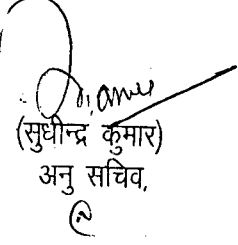 (सुधीन्द्र कुमार)
अनु सचिव,